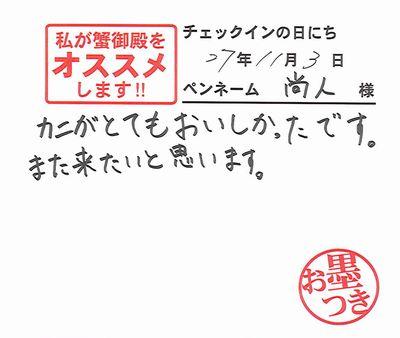 私が蟹御殿を
オススメ
します!!
チェックインの日にち
27年11月3日
ペンネーム 尚人 様
カニがとてもおいしかったです。
また来たいと思います。
お墨つき